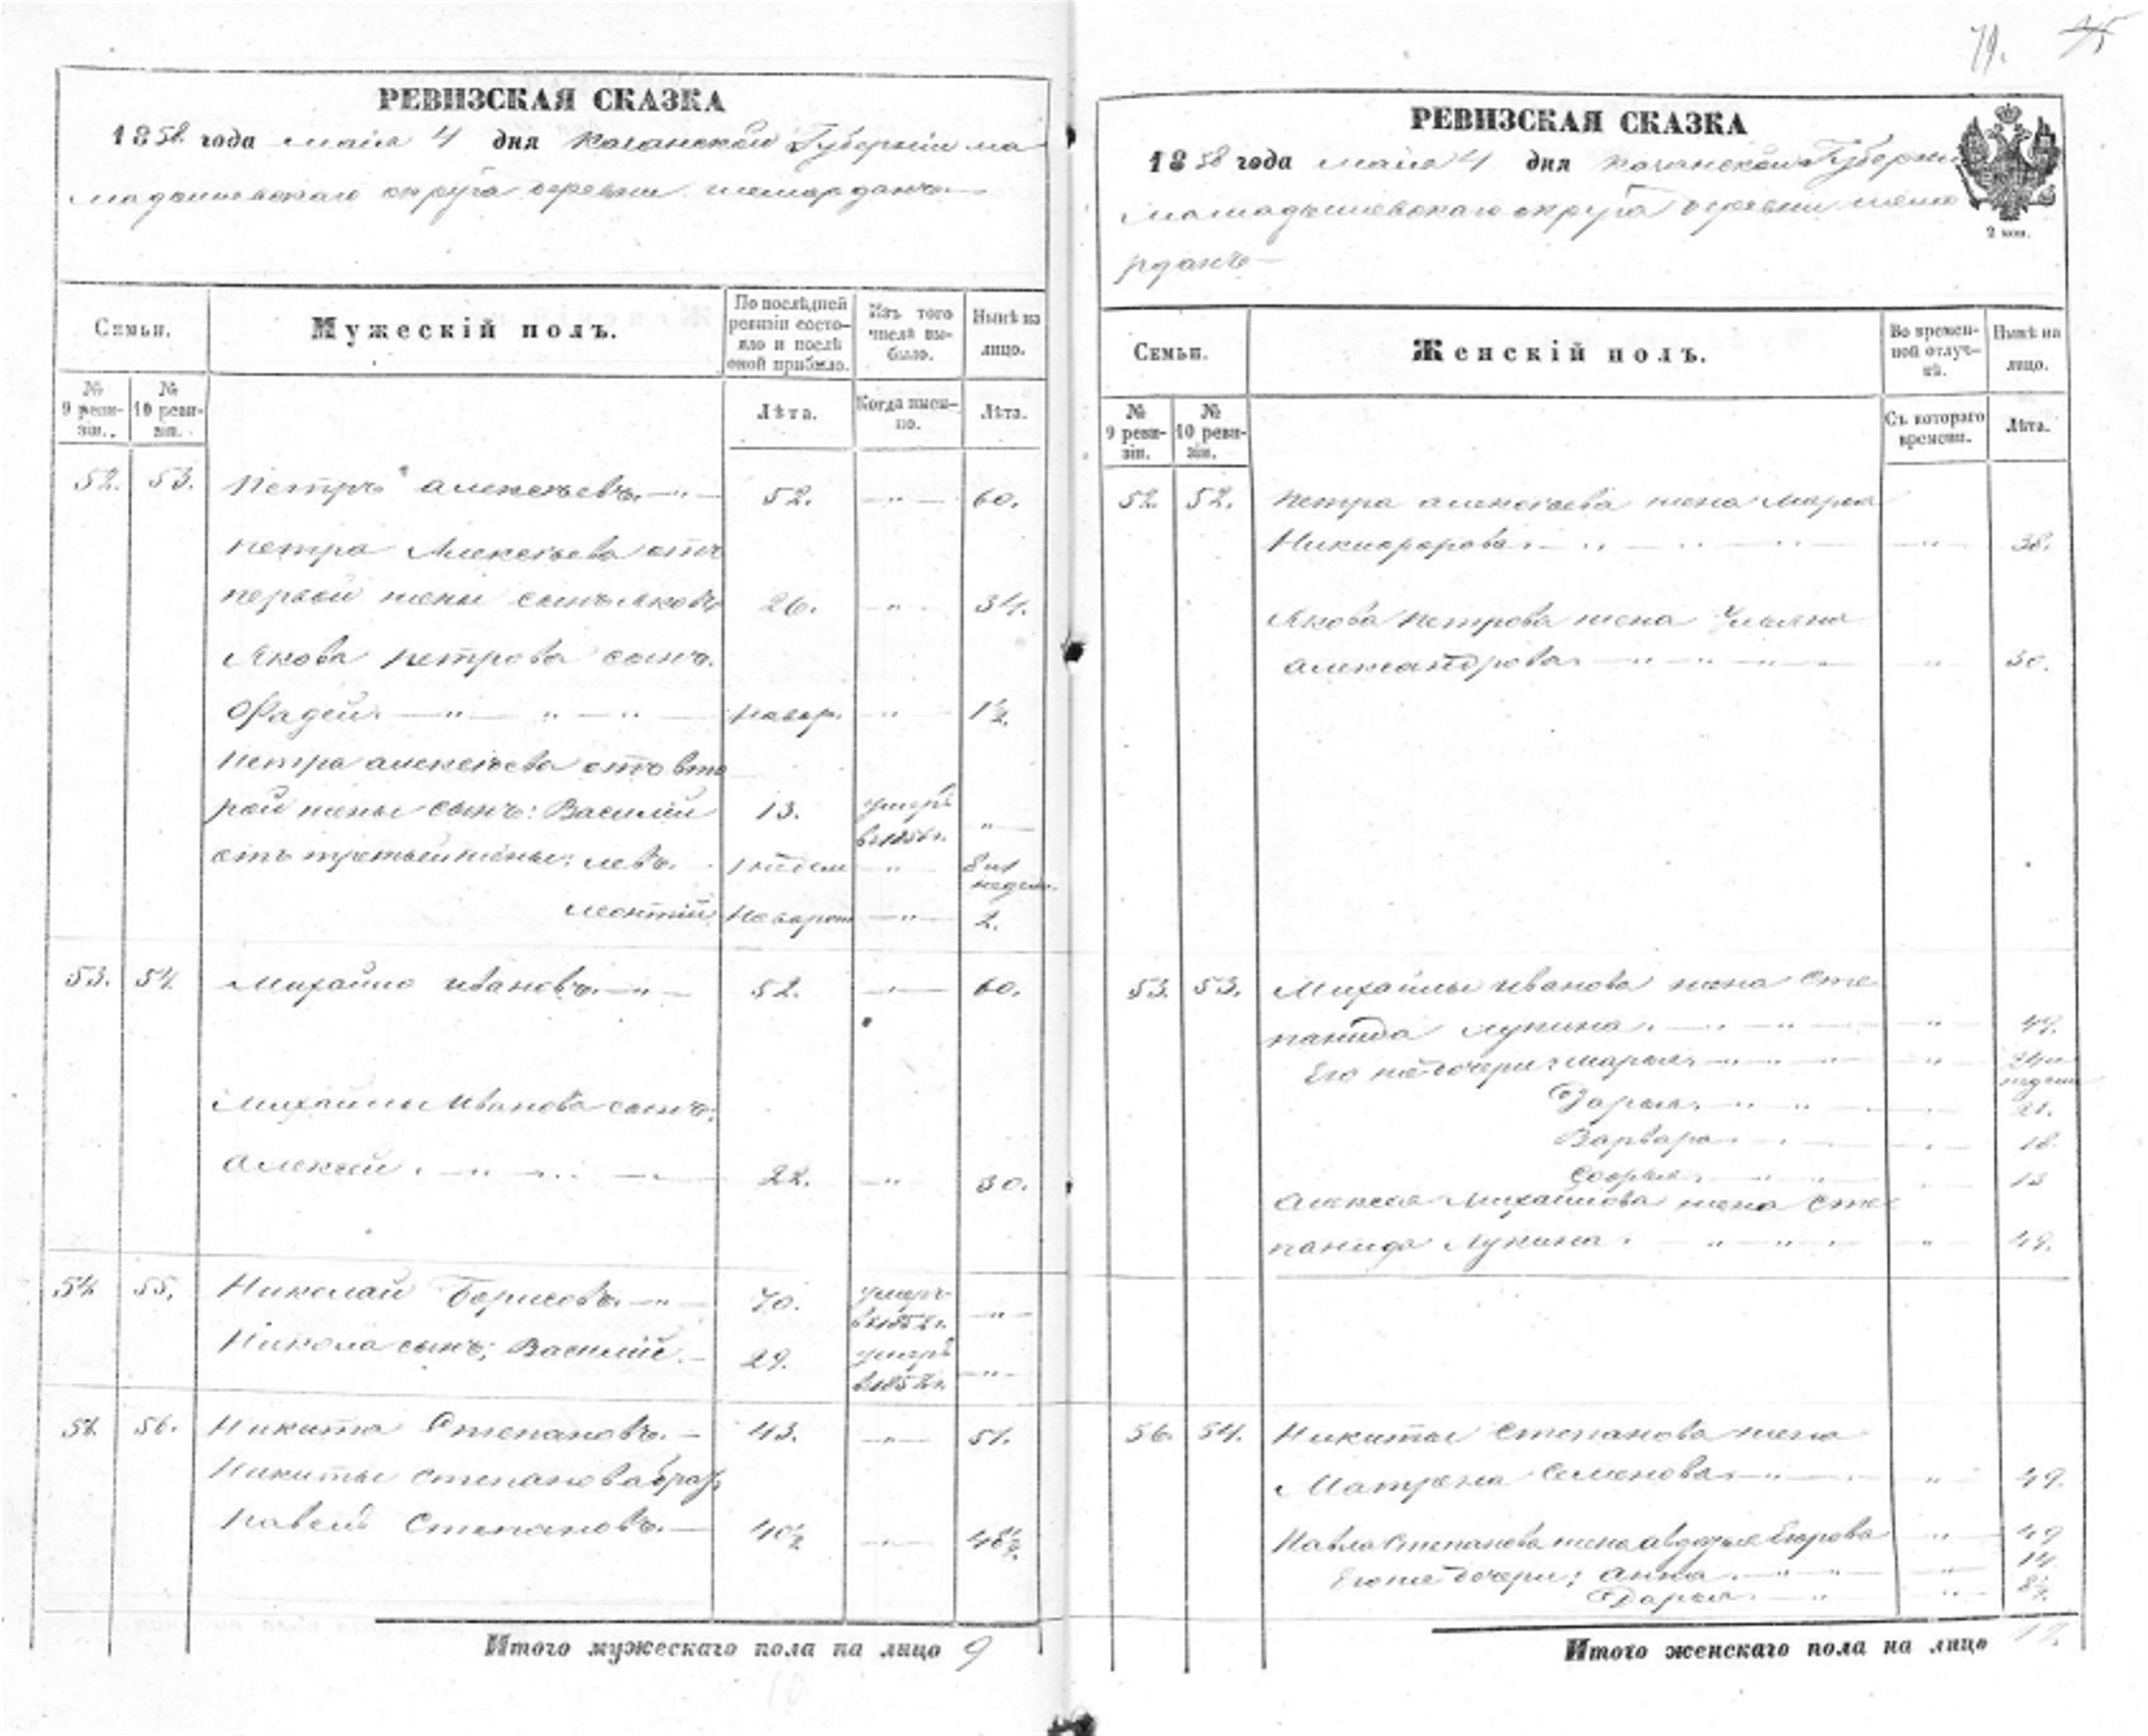 71. 75
РЕВИЗСКАЯ СКАЗКА
1858 года маія 4 дня Казанской Губерніи ма
мадышевскаго округа деревни шемордана
Семьи.
Мужескій полъ.
По послѣдней ревизіи состояло и послѣ оной прибыло.
Изъ того числа выбыло.
Нынѣ на лицо.
№ 9 ревизіи.
№ 10 ревизіи.
Лѣта.
Когда именно.
Лѣта.
52. 53. Петръ алексѣевъ. — " — 52. — " — 60.
петра Алексѣева отъ
первой жены сынъ яковъ 26. — " — 34.
Якова петрова сынъ.
Фадей. — " — " — " — новор. — " — 1½.
Петра алексѣева отъ вто
рой жены сынъ: Василій 13. умеръ в 1856 г. — " —
отъ третьей жены: левъ. 1 недели — " — 8 и 1 недели.
леонтій новорож — " — 2.
53. 54. Михайло ивановъ. — " — 52. — " — 60.
Михайлы Иванова сынъ:
алексей. — " — " — 22. — " — 30.
54. 55. Николай Борисовъ. — " — 70. умеръ в 1852 г. — " —
Никола сынъ: Василій. — 29. умеръ — " —
56. 56. Никита Степановъ. — 43. — " — 51.
Никиты степанова брат
Павелъ Степановъ. — 40½ — " — 48½.
Итого мужескаго пола на лицо 9
РЕВИЗСКАЯ СКАЗКА
1858 года маія 4 дня казанской Губерни
мамадышевскаго округа деревни шемо
рдана —
2 коп.
Семьи.
Женскій полъ.
Во временной отлучкѣ.
Нынѣ на лицо.
№ 9 ревизіи.
№ 10 ревизіи.
Съ котораго времени.
Лѣта.
52. 52. Петра алексѣева жена марья
Никифорова. — " — 38.
Якова Петрова жена Ульяна
александрова — " — 30.
53. 53. Михайлы иванова жена сте
панида лукина. — " — 49.
Его же дочери: марья. — " —
Дарья. — " — 21.
Варвара — " — 18.
Софья. — " — 13
алексея михайлова жена сте
панида Лукина. — " — 49.
56. 54. Никиты степанова жена
Матрена семенова. — " — 49.
Павла степанова жена авдотья Егорова — " — 49
Его же дочери: анна — " — 14
Дарья. — " — 8½.
Итого женскаго пола на лицо 12.